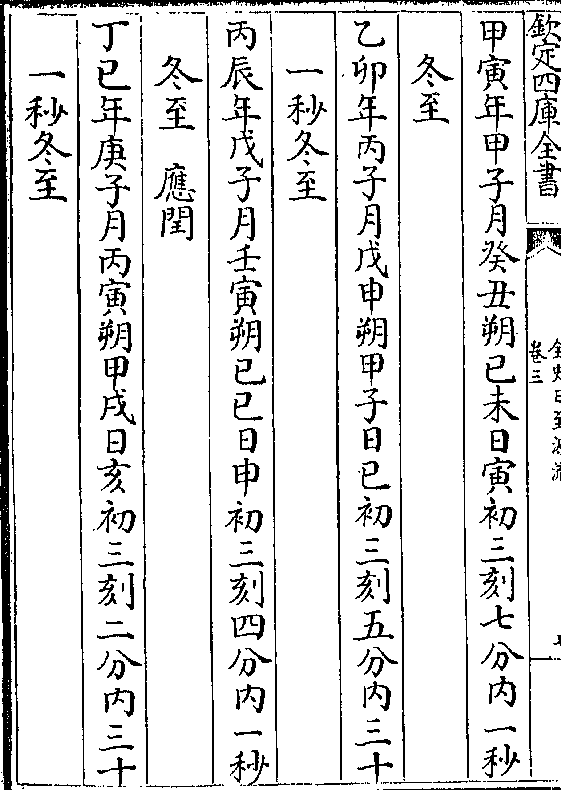 欽定四庫全書
卷三
甲寅年甲子月癸丑朔已未日寅初三刻七分内一秒
冬至
乙卯年丙子月戊申朔甲子日已初三刻五分内三十
一秒冬至
丙辰年戊子月壬寅朔已已日申初三刻四分内一秒
冬至　應閏
丁已年庚子月丙寅朔甲戌日亥初三刻二分内三十
一秒冬至